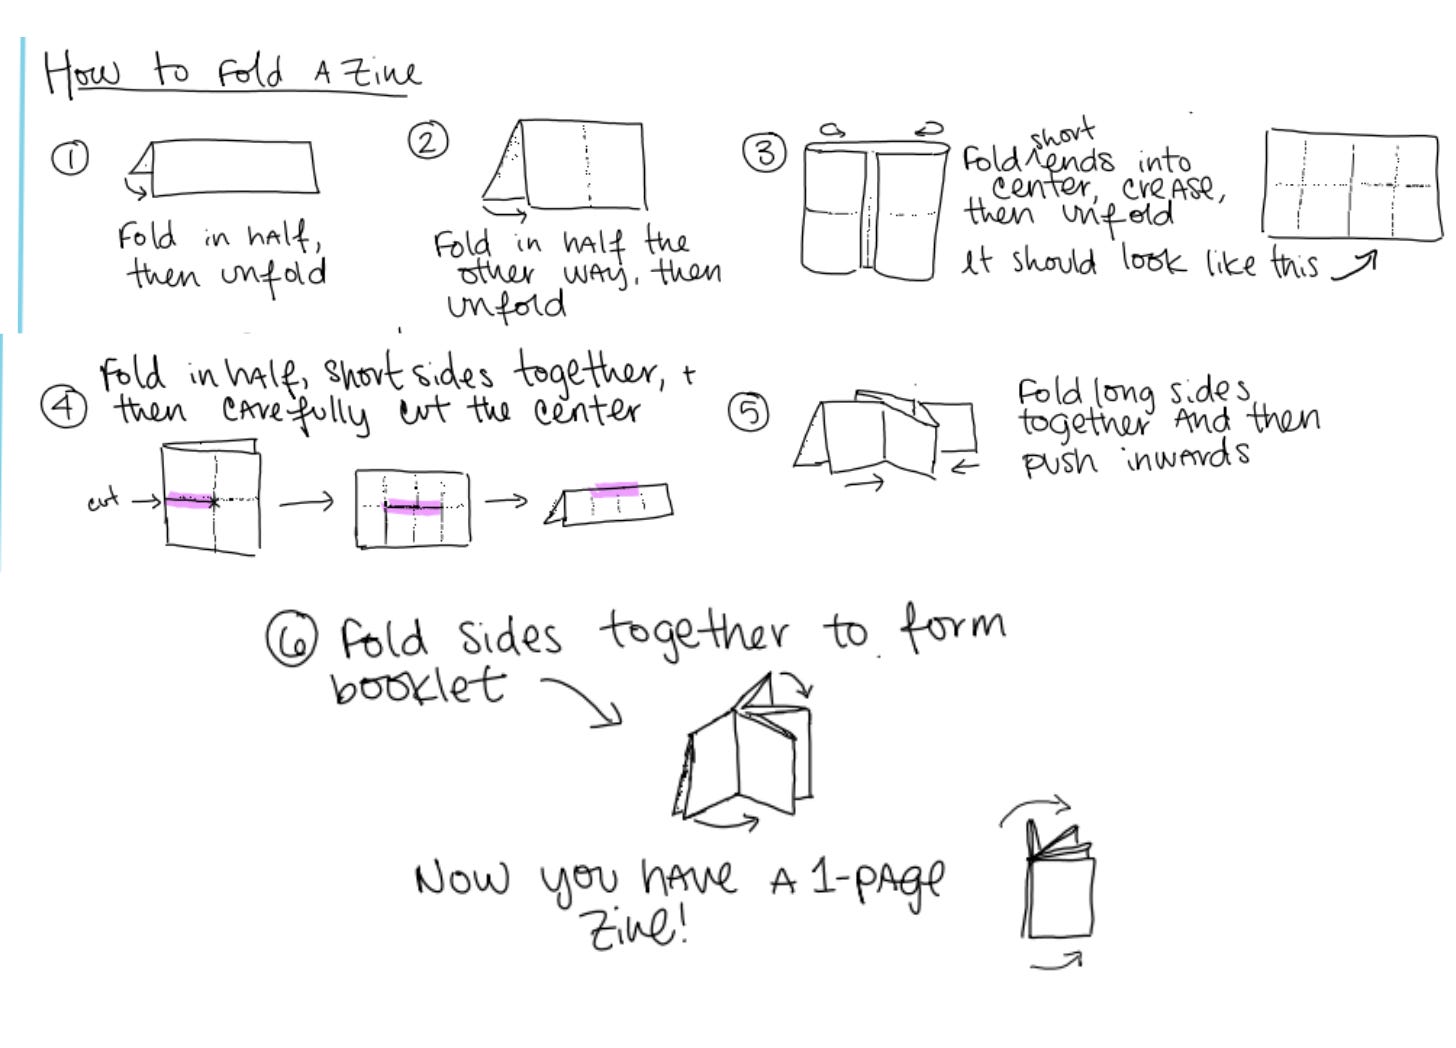 How to Fold A Zine
1
Fold in half,
then unfold
2
Fold in half the
other way, then
unfold
3
Fold short ends into
center, crease,
then unfold
It should look like this
4
Fold in half, short sides together, +
then carefully cut the center
cut
5
Fold long sides
together And then
push inwards
6 Fold sides together to form
booklet
Now you have A 1-page
Zine!